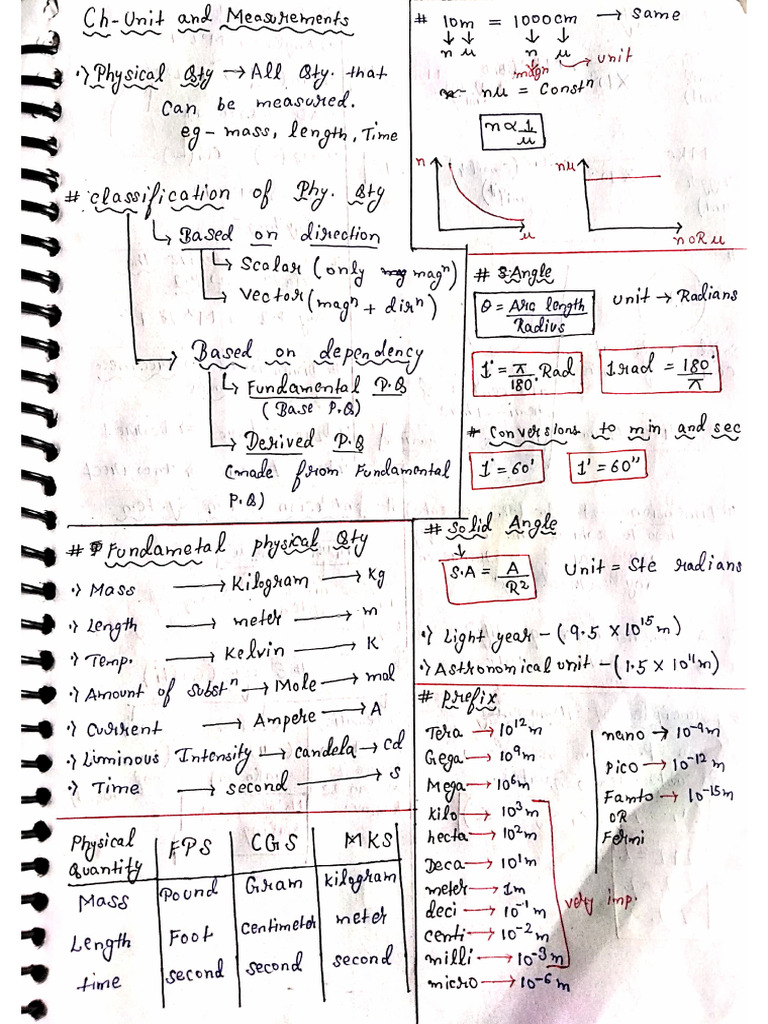 Ch-Unit and Measurements
•) Physical Qty → All Qty. that
can be measured.
eg - mass, length, Time
# classification of Phy. Qty
↳ Based on direction
↳ Scalar (only magⁿ)
↳ Vector (magⁿ + dirⁿ)
→ Based on dependency
↳ Fundamental P.Q
(Base P.Q)
→ Derived P.Q
(made from Fundamental
P.Q)
# Fundametal physical Qty
•) Mass → Kilogram → kg
•) Length → meter → m
•) Temp. → Kelvin → K
•) Amount of Substⁿ → Mole → mol
•) Current → Ampere → A
•) Luminous Intensity → candela → cd
•) Time → second → s
Physical Quantity | FPS | CGS | MKS
Mass | Pound | Gram | kilogram
Length | Foot | Centimetor | meter
time | second | second | second
# 10m = 1000cm → same
↓ ↓ ↓ ↓
n u n u → unit
magⁿ
nu = Constⁿ
n ∝ 1/u
n
u
nu
n OR u
# Angle
θ = Arc length / Radius
Unit → Radians
1° = π/180° Rad
1 rad = 180°/π
# Conversions to min and sec
1° = 60'
1' = 60"
# Solid Angle
↓
S.A = A/R²
Unit = Ste radians
•) Light year - (9.5 × 10¹⁵ m)
•) Astronomical unit - (1.5 × 10¹¹ m)
# prefix
Tera → 10¹² m
Gega → 10⁹ m
Mega → 10⁶ m
Kilo → 10³ m
hecta → 10² m
Deca → 10¹ m
meter → 1m
deci → 10⁻¹ m
centi → 10⁻² m
milli → 10⁻³ m
micro → 10⁻⁶ m
very imp.
nano → 10⁻⁹ m
pico → 10⁻¹² m
Famto → 10⁻¹⁵ m
OR
Fermi